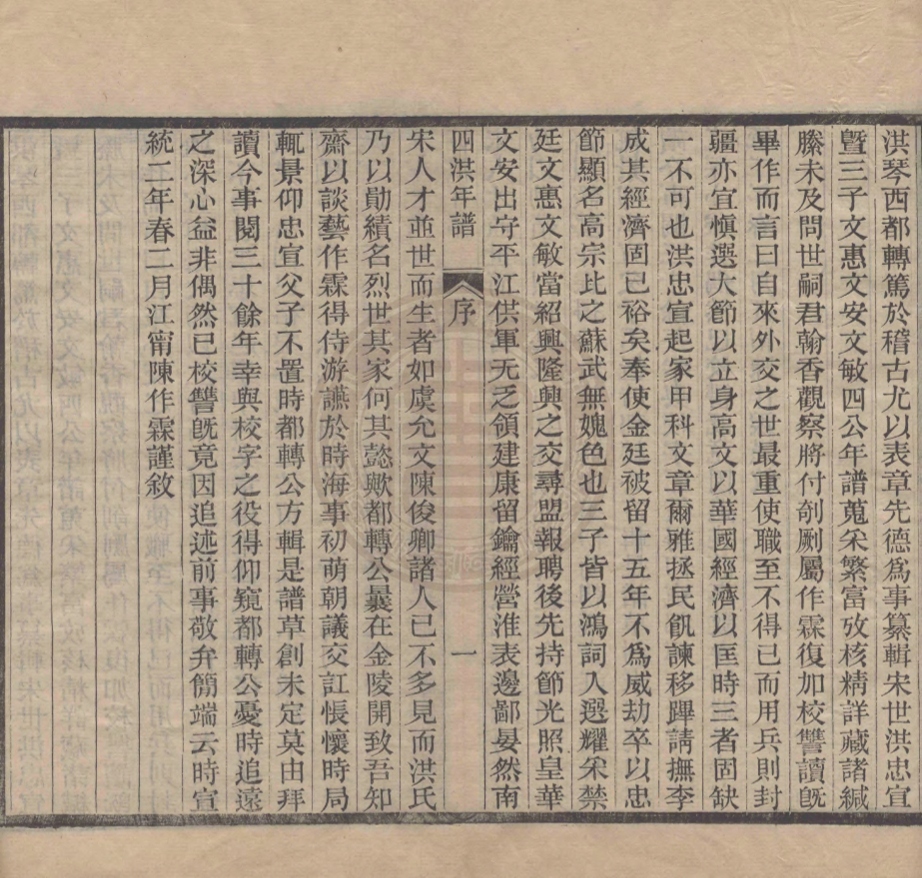 洪琴西都轉篤於稽古尤以表章先德爲事纂輯宋世洪忠宣
曁三子文惠文安文敏四公年譜蒐采繁富攷核精詳藏諸緘
縢未及問世嗣君翰香觀察將付剞劂屬作霖復加校讐讀旣
畢作而言曰自來外交之世最重使職至不得已而用兵則封
疆亦宜愼選大節以立身高文以華國經濟以匡時三者固缺
一不可也洪忠宣起家甲科文章爾雅拯民飢諫移蹕請撫李
成其經濟固已裕矣奉使金廷被留十五年不爲威劫卒以忠
節顯名高宗比之蘇武無媿色也三子皆以鴻詞入選耀采禁
廷文惠文敏當紹興隆興之交尋盟報聘後先持節光照皇華
文安出守平江供軍无乏領建康留鑰經營淮表邊鄙晏然南
四洪年譜 序 一
宋人才並世而生者如虞允文陳俊卿諸人已不多見而洪氏
乃以勛績名烈世其家何其懿歟都轉公曩在金陵開致吾知
齋以談藝作霖得侍游讌於時海事初萌朝議交訌悵懷時局
輒景仰忠宣父子不置時都轉公方輯是譜草創未定莫由拜
讀今事閱三十餘年幸與校字之役得仰窺都轉公憂時追遠
之深心益非偶然已校讐旣竟因追述前事敬弁簡端云時宣
統二年春二月江甯陳作霖謹敘